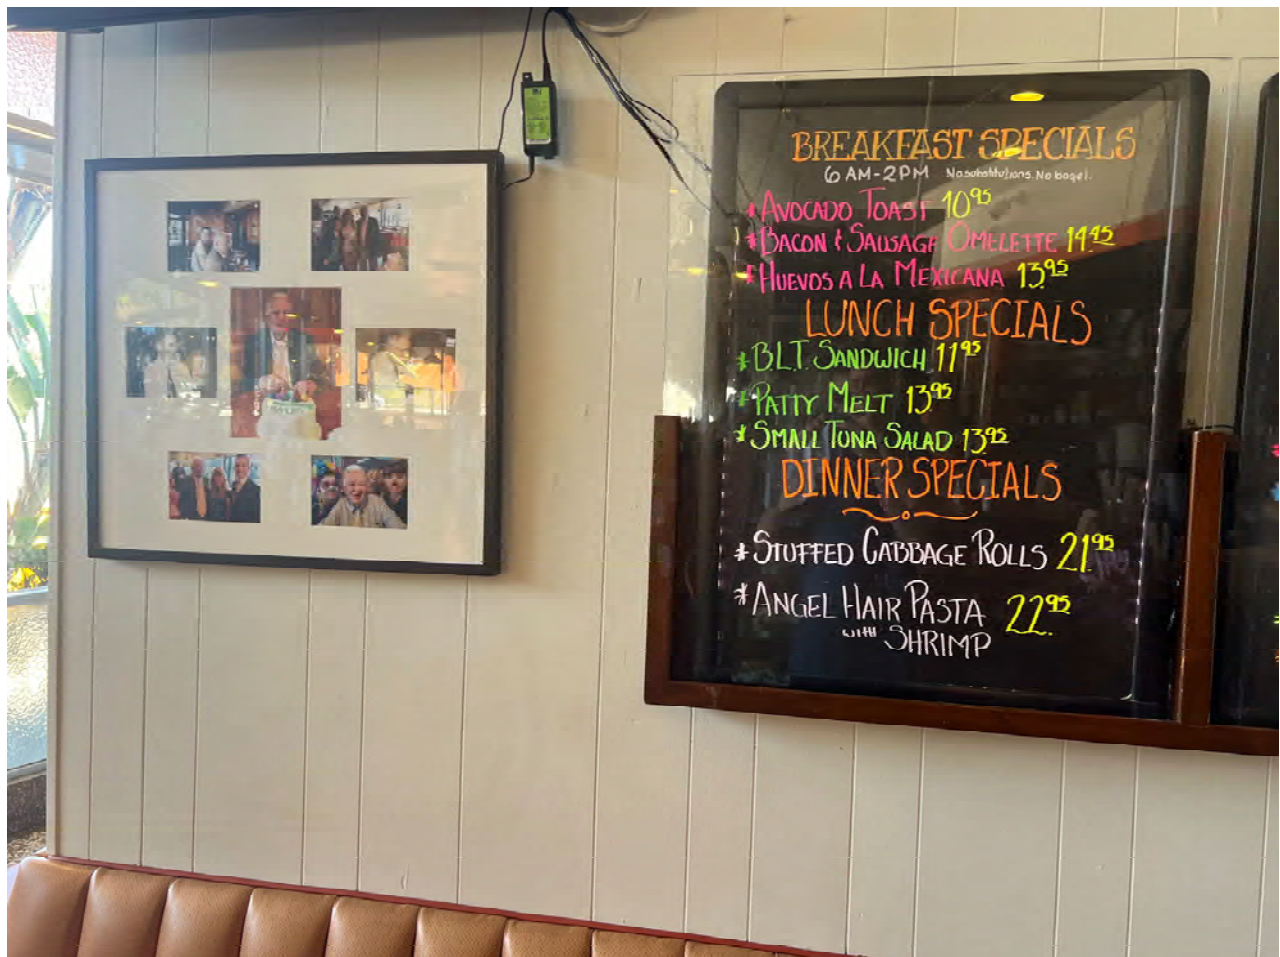 BREAKFAST SPECIALS
6 AM-2PM No substitutions. No bagel.
*AVOCADO TOAST 10.95
*BACON & SAUSAGE OMELETTE 14.95
*HUEVOS A LA MEXICANA 13.95
LUNCH SPECIALS
*B.L.T. SANDWICH 11.95
*PATTY MELT 13.95
*SMALL TUNA SALAD 13.95
DINNER SPECIALS
*STUFFED CABBAGE ROLLS 21.95
*ANGEL HAIR PASTA 22.95
WITH SHRIMP